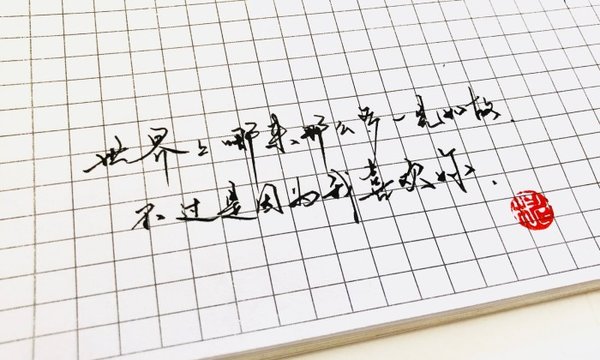 世界上哪来那么多一见如故.
不过是因为我喜欢你.